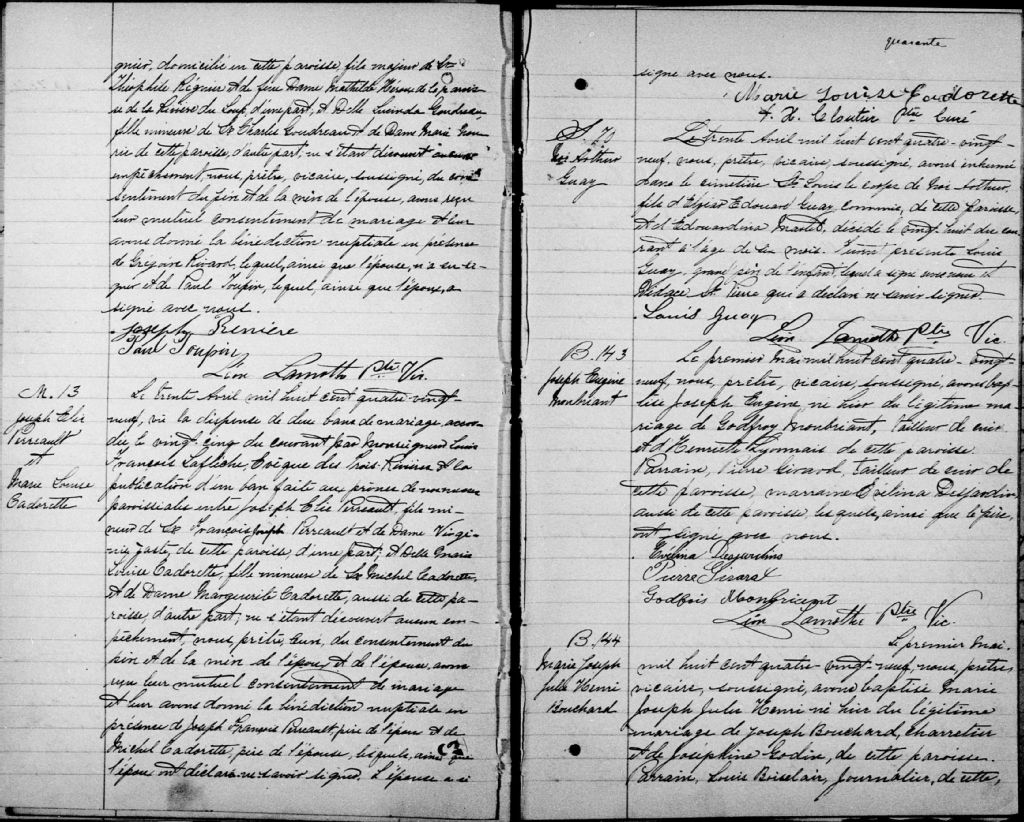 gnier, domicilié en cette paroisse, fils majeur de Sr
Théophile Régnier et de feu Dame Mathilde de la parois-
se de la Rivière du Loup, d'une part, et Delle Lucinda Goudreau
fille mineure de Sr Charles Goudreau et de Dame Marie
rie de cette paroisse, d'autre part, ne s'étant découvert aucun
empêchement, nous, prêtre, vicaire, soussigné, du con-
sentement du père et de la mère de l'épouse, avons reçu
leur mutuel consentement de mariage et leur
avons donné la bénédiction nuptiale en présence
de Grégoire Rivard, lequel, ainsi que l'épouse, n'a su si-
gner et de Paul Toupin, lequel, ainsi que l'époux, a
signé avec nous.
Joseph Renière
Paul Toupin
Léon Lamothe Ptre Vic.
M. 13
Joseph Elie
Perreault
et
Marie Louise
Cadorette
Le trente Avril mil huit cent quatre-vingt-
neuf, vu la dispense de deux bans de mariage accor-
dée le vingt-cinq du courant par Monseigneur Louis
François Laflèche, Evêque des Trois-Rivières et la
publication d'un ban faite au prône de nos messes
paroissiales entre Joseph Elie Perreault, fils mi-
neur de Sr François Joseph Perreault et de Dame Virgi-
nie de cette paroisse d'une part; et Delle Marie
Louise Cadorette, fille mineure de Sr Michel Cadorette,
et de Dame Marguerite Cadorette, aussi de cette pa-
roisse, d'autre part, ne s'étant découvert aucun em-
pêchement, nous, prêtre, Curé, du consentement du
père et de la mère de l'époux et de l'épouse, avons
reçu leur mutuel consentement de mariage
et leur avons donné la bénédiction nuptiale en
présence de Joseph François Perreault, père de l'époux et de
Michel Cadorette, père de l'épouse, lesquels, ainsi que
l'époux ont déclaré ne savoir signer. L'épouse a si
quarante
signé avec nous.
Marie Louise Cadorette
F. X. Cloutier Ptre Curé
S. 79
Arthur
Guay
Le trente Avril mil huit cent quatre-vingt-
neuf, nous, prêtre, vicaire, soussigné, avons inhumé
dans le cimetière St Louis le corps de Arthur,
fils d'Elzéar Edouard Guay, Commis, de cette paroisse,
et d'Edouardina Martel, décédé le vingt-huit du cou-
rant à l'âge de mois. Furent présents Louis
Guay, grand père de l'enfant, lequel a signé avec nous et
St Pierre qui a déclaré ne savoir signer.
Louis Guay
Léon Lamothe Ptre Vic.
B. 143
Joseph Eugène
Monbriant
Le premier Mai mil huit cent quatre-vingt-
neuf, nous, prêtre, vicaire, soussigné, avons bap-
tisé Joseph Eugène, né hier du légitime ma-
riage de Godfroy Monbriant, tailleur de cuir
et d'Henriette Lyonnais de cette paroisse.
Parrain, Pierre Girard, tailleur de cuir de
cette paroisse, marraine Evélina Desjardins
aussi de cette paroisse, lesquels, ainsi que le père,
ont signé avec nous.
Evelina Desjardins
Pierre Girard
Godfois Monbrient
Léon Lamothe Ptre Vic.
B. 144
Marie Joseph
Jules Henri
Bouchard
Le premier Mai
mil huit cent quatre-vingt-neuf, nous, prêtre,
vicaire, soussigné, avons baptisé Marie
Joseph Jules Henri né hier du légitime
mariage de Joseph Bouchard, charretier
et de Joséphine Godin, de cette paroisse.
Parrain, Louis Boisclair, Journalier, de cette,